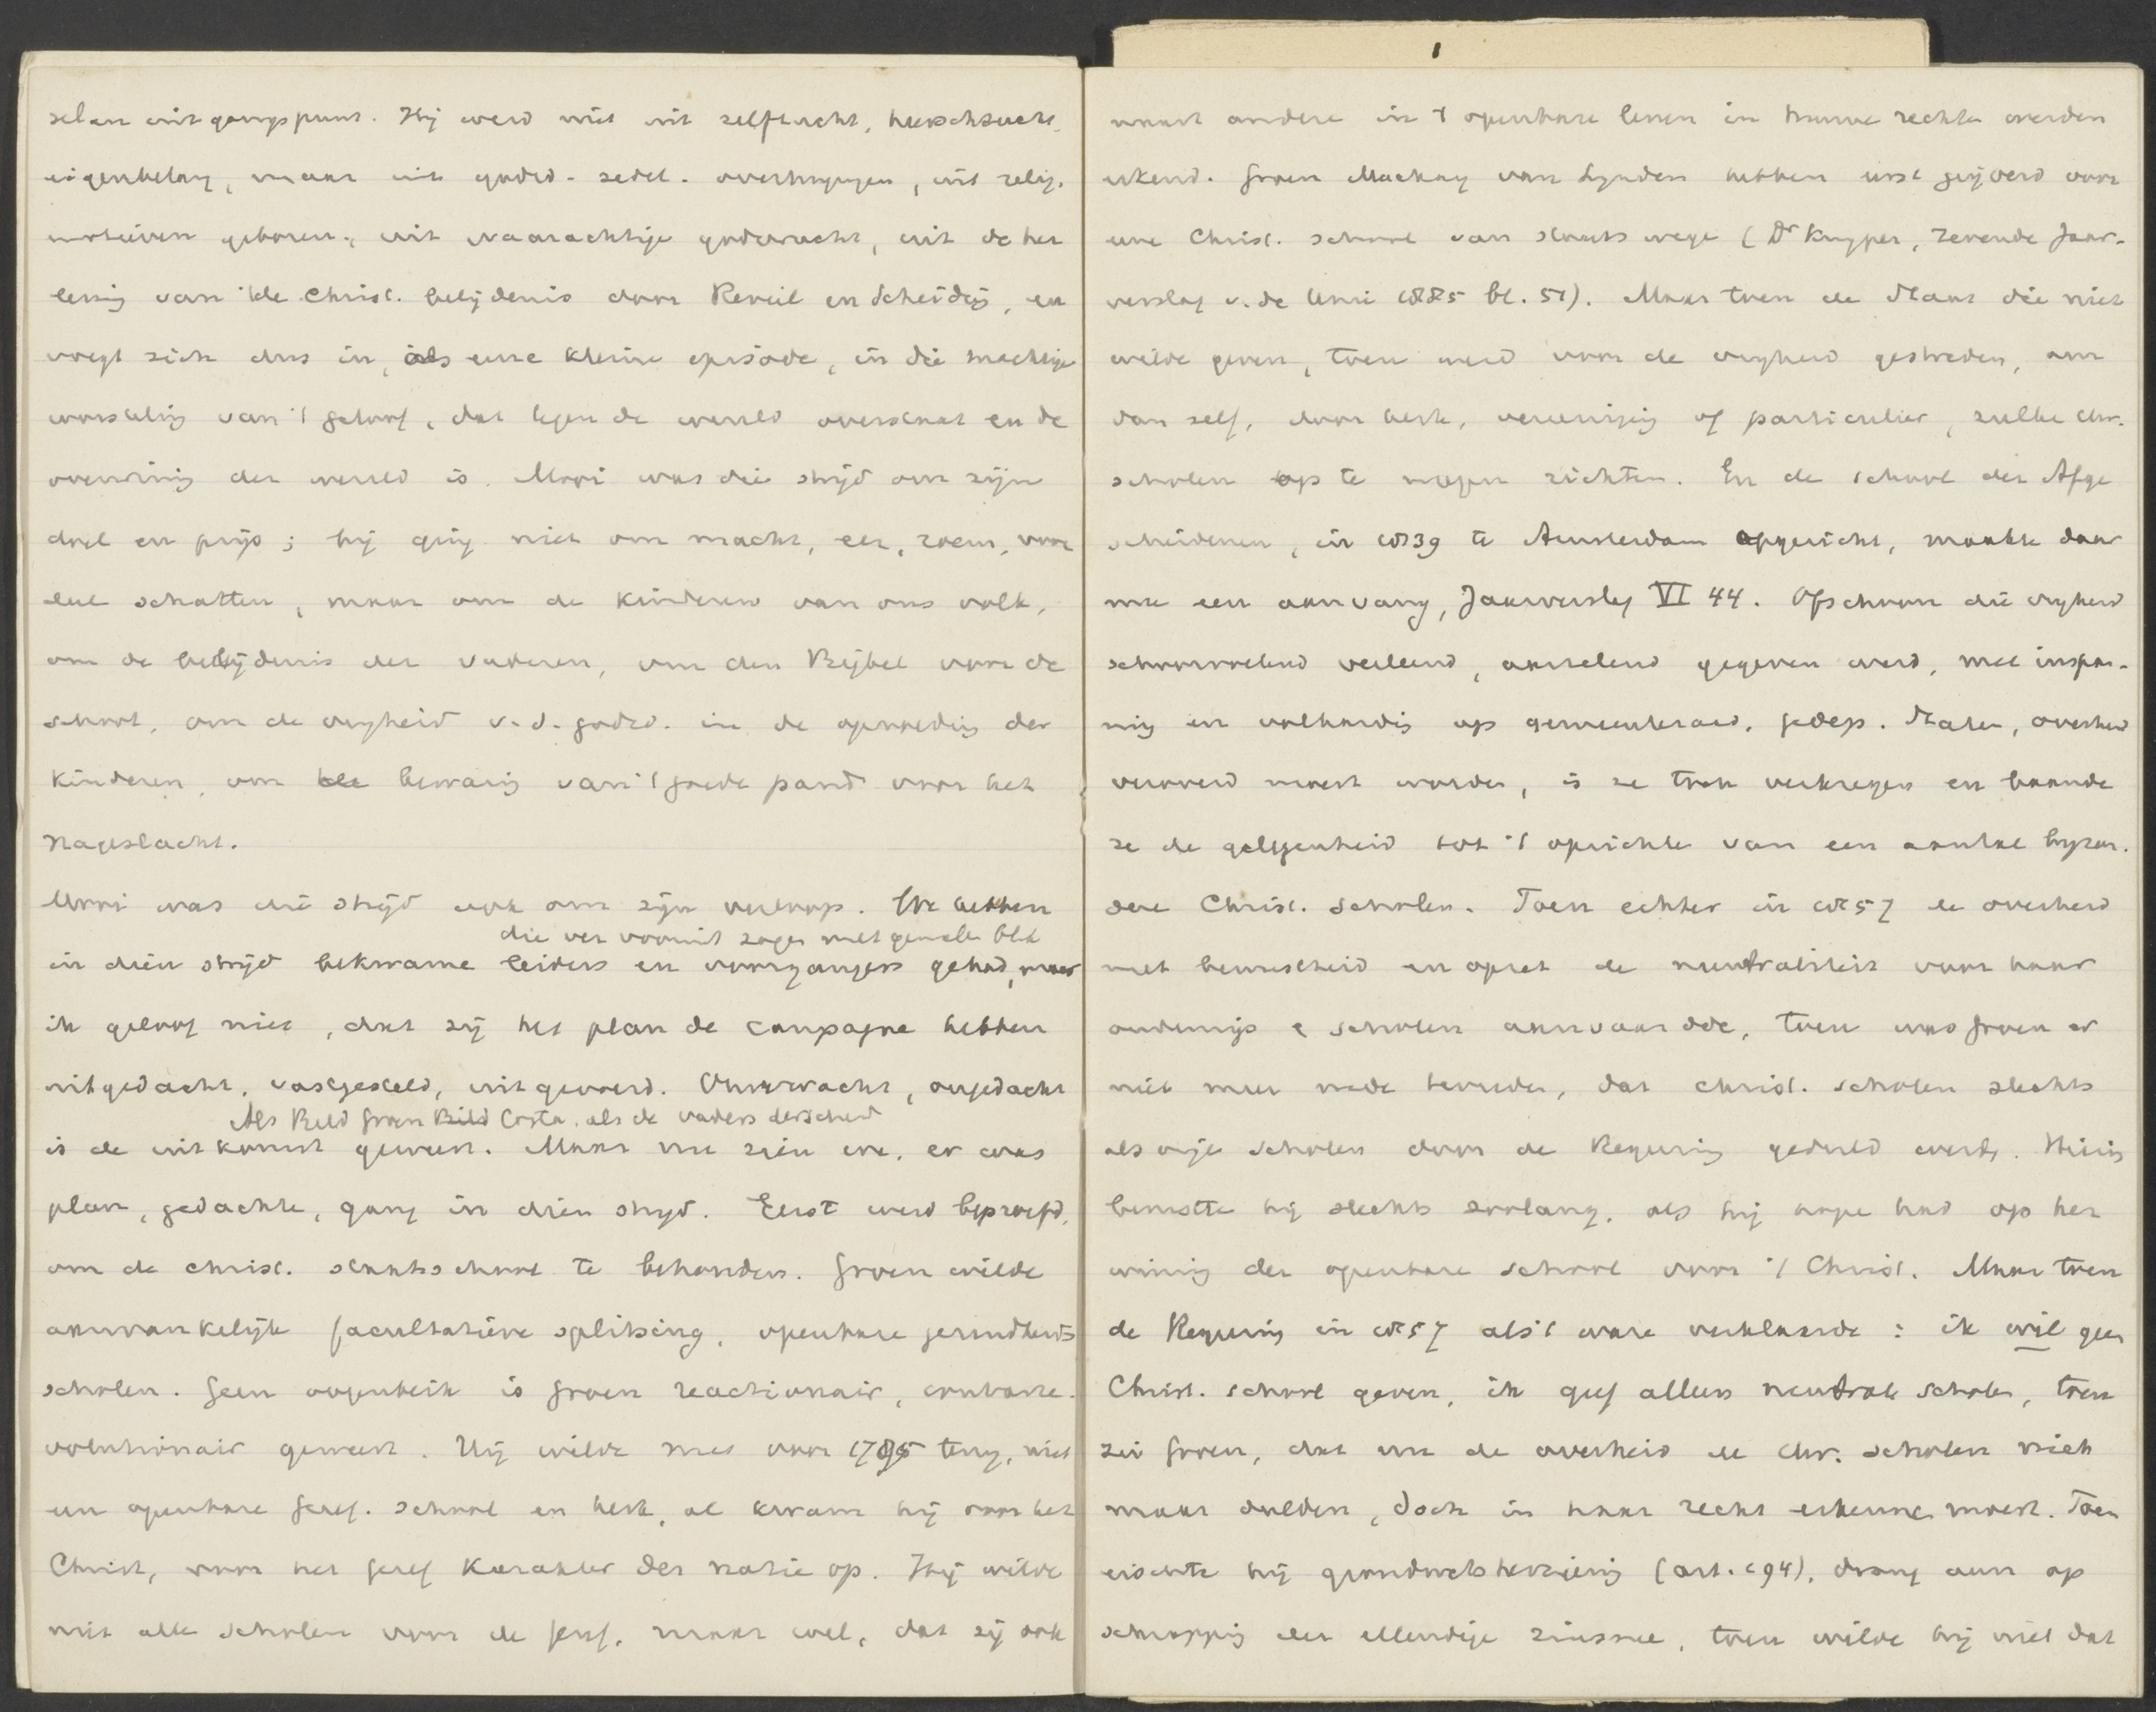 delen uitgangspunt. Hij werd niet uit zelfzucht, heerschzucht,
eigenbelang, maar uit godsd. - zedel. overtuigingen, uit relig.
motieven geboren; uit waarachtige godsvrucht, uit de her
leving van de Christ. belijdenis door Reveil en Scheiding, en
voegt zich dus in, als eene kleine episode, in die machtige
worsteling van 't geloof, dat tegen de wereld overstaat en de
overwining der wereld is. Mooi was die strijd om zijn
doel en prijs; hij ging niet om macht, eer, roem, voor
schatten, maar om de kinderen van ons volk,
om de belijdenis der vaderen, om den Bijbel voor de
school, om de vrijheid v. d. godsd. in de opvoeding der
kinderen, om de bewaring van 't goede pand voor het
nageslacht.
Mooi was die strijd ook om zijn verloop. We hebben
die ver vooruit zagen met genialen blik
in dien strijd bekwame leiders en voorgangers gehad, maar
ik geloof niet, dat zij het plan de campagne hebben
uitgedacht, vastgesteld, uitgevoerd. Onverwacht, ongedacht
Als Bild Groen Bild Costa, als de vaders der scheid
is de uitkomst geweest. Maar nu zien we, er was
plan, gedachte, gang in dien strijd. Eerst werd beproefd,
om de christ. staatsschool te behouden. Groen wilde
aanvankelijk facultatieve splitsing, openbare gezindheids
scholen. Geen oogenblik is Groen reactionair, contrare-
volutionair geweest. Hij wilde niet voor 1795 terug, niet
een openbare Geref. school en kerk, al kwam hij voor het
Christ, voor het geref karakter der natie op. Hij wilde
niet alle scholen voor de Geref. maar wel, dat zij ook
naast andere in 't openbare leven in hunne rechten werden
erkend. Groen Mackay van Lynden hebben eerst geijverd voor
eene Christ. school van staatswege (Dr Kuyper, Zevende Jaar-
verslag v. de Unie 1885 bl. 51). Maar toen de Staat die niet
wilde geven, toen werd voor de vrijheid gestreden, om
dan zelf, door kerk, vereeniging of particulier, zulke chr.
scholen op te mogen richten. En de school der Afge
scheidenen, in 1839 te Amsterdam opgericht, maakte daar
mee een aanvang, Jaarverslag VI 44. Ofschoon die vrijheid
schoorvoetend verleend, aarzelend gegeven werd, met inspan-
ning en volharding op gemeenteraad, gedep. Staten, overheid
veroverd moest worden, is ze toen verkregen en baande
ze de gelegenheid tot 't oprichten van een aantal byzon.
dere Christ. Scholen. Toen echter in 1857 de overheid
met bewustheid en opzet de neutraliteit voor haar
onderwijs & scholen aanvaardde, toen was Groen er
niet meer mede tevreden, dat christ. scholen slechts
als vrije scholen door de Regeering geduld werden. Hierin
berustte hij slechts zoolang, als hij hope had op her
wining der openbare school voor 't Christ. Maar toen
de Regeering in 1857 als 't ware verklaarde: ik wil geen
Christ. school geven, ik geef alleen neutrale scholen, toen
zei Groen, dat nu de overheid de chr. scholen niet
maar dulden, doch in haar recht erkennen moest. Toen
eischte hij grondwetsherziening (art. 194), drong aan op
schrapping der ellendige zinsnee, toen wilde hij niet dat